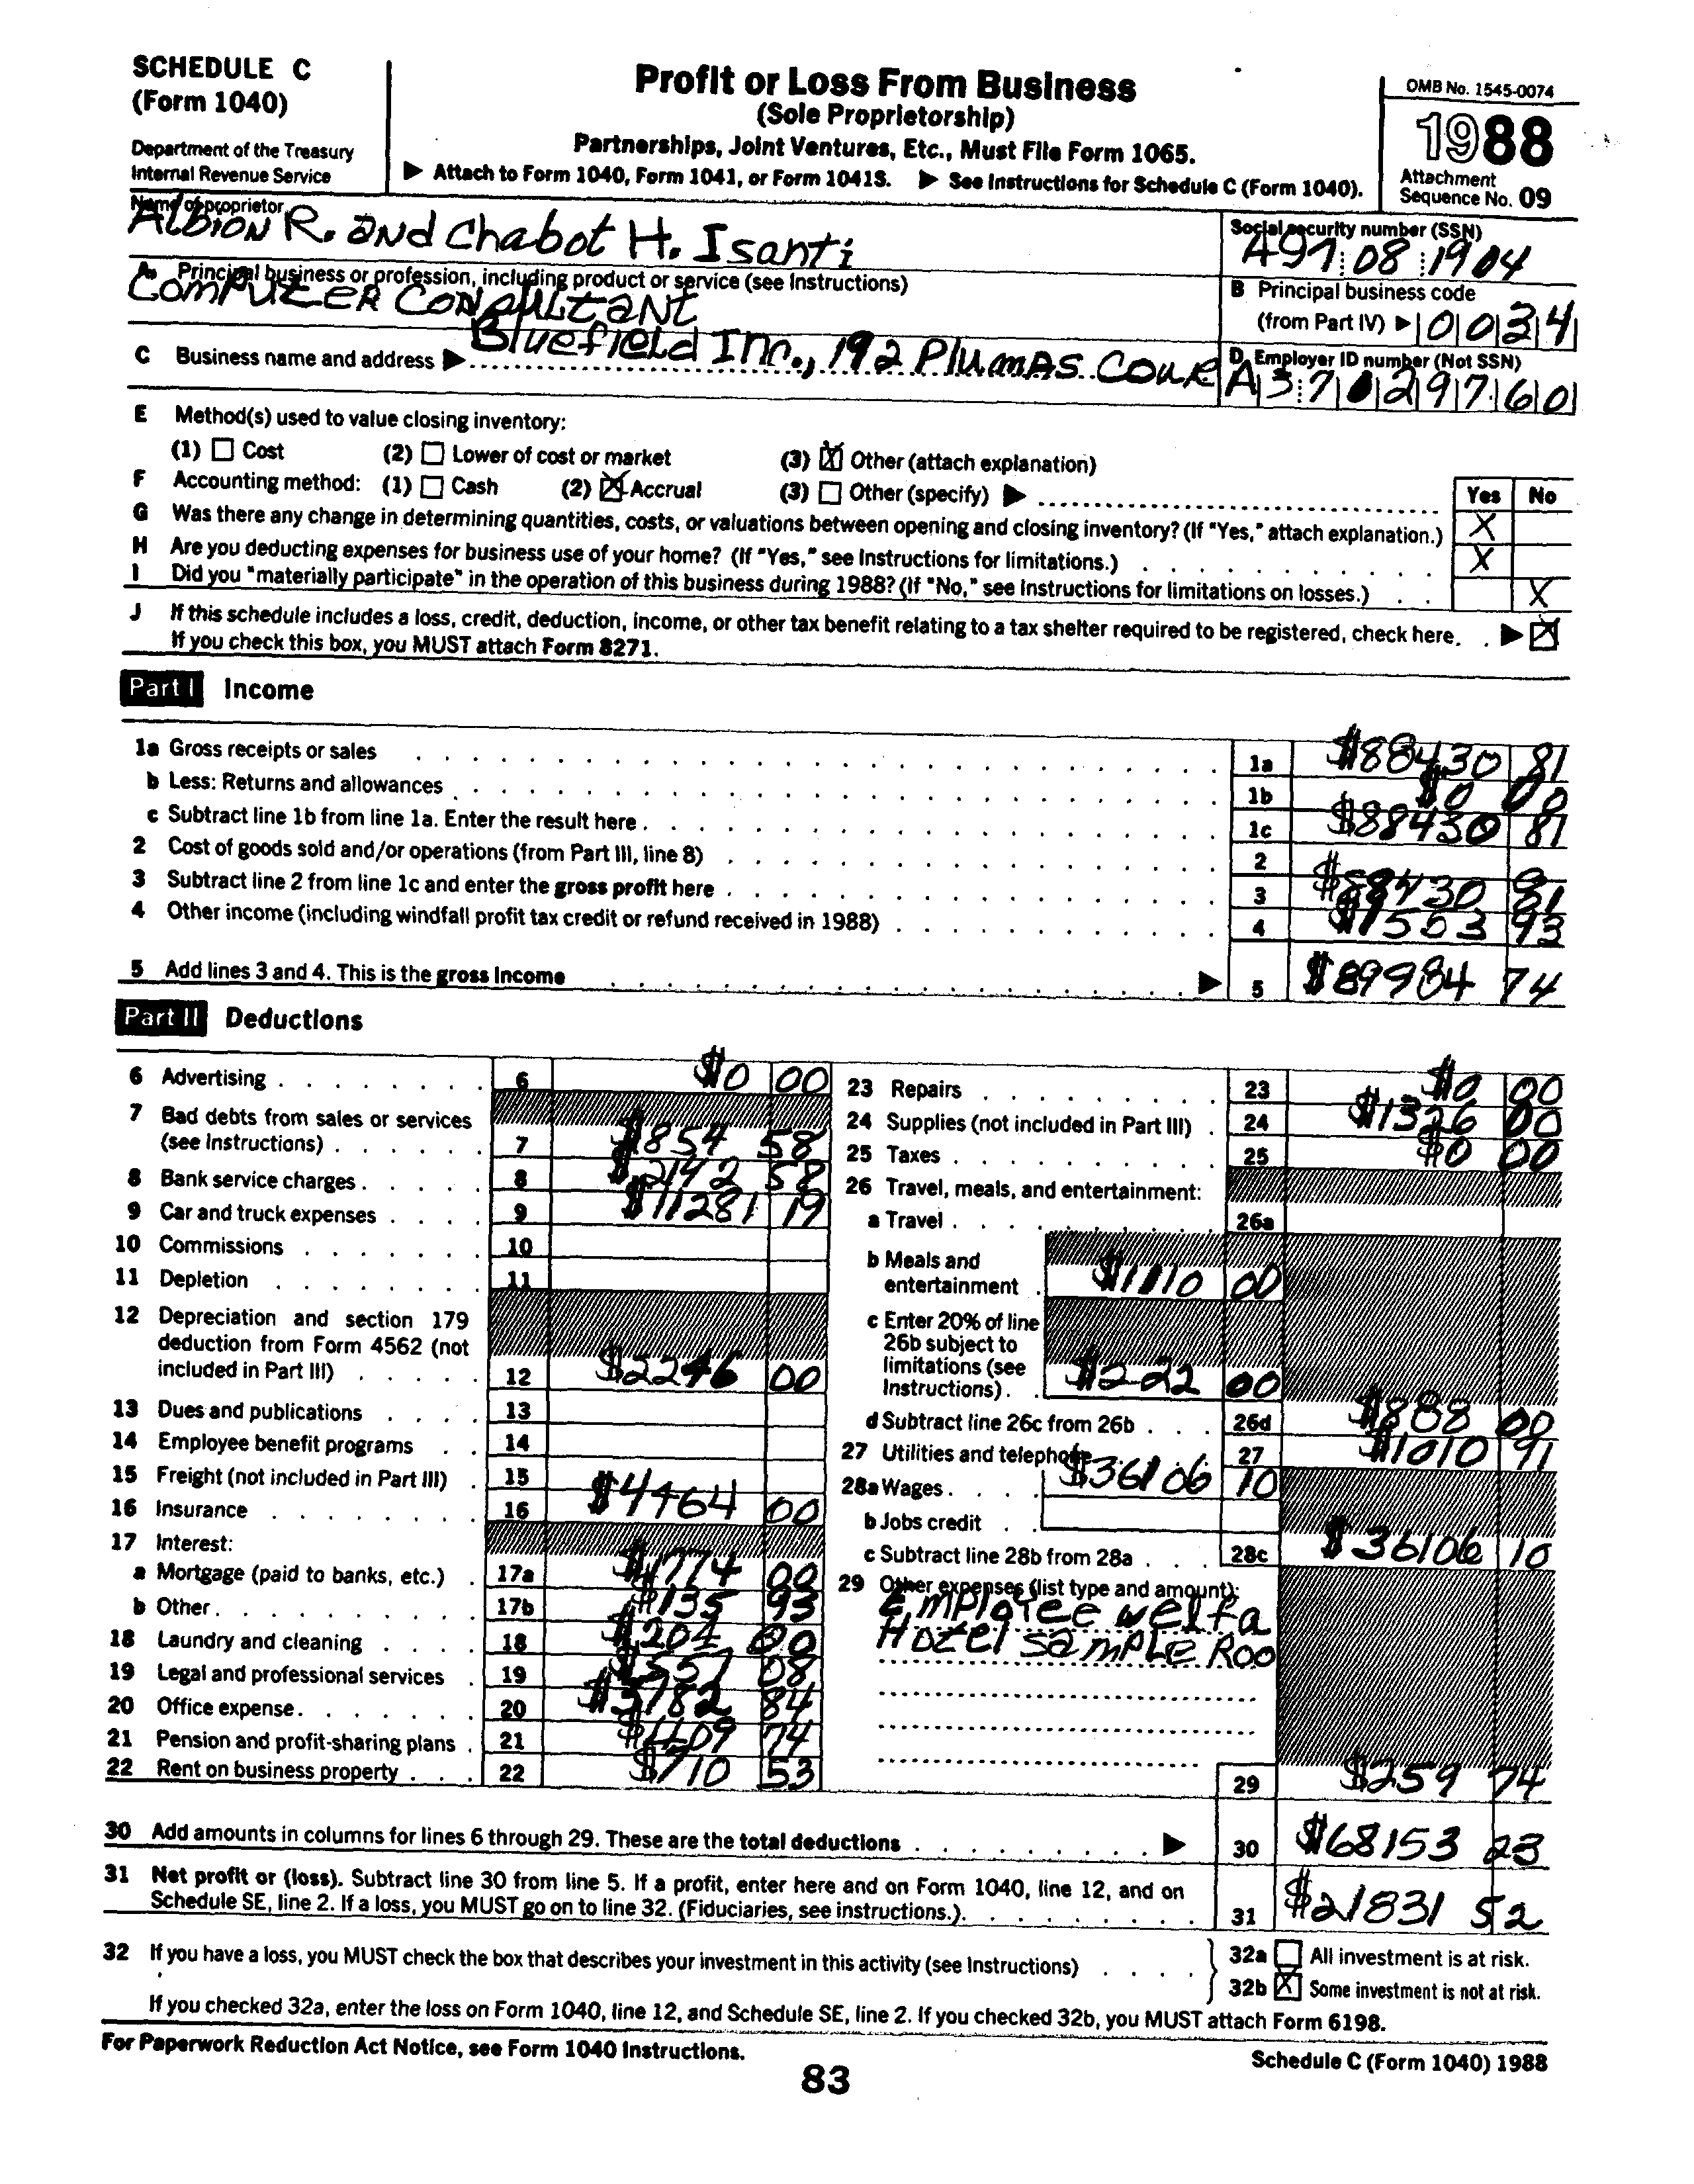 SCHEDULE C
(Form 1040)
Department of the Treasury
Internal Revenue Service
Profit or Loss From Business
(Sole Proprietorship)
Partnerships, Joint Ventures, Etc., Must File Form 1065.
▶ Attach to Form 1040, Form 1041, or Form 1041S. ▶ See Instructions for Schedule C (Form 1040).
OMB No. 1545-0074
1988
Attachment
Sequence No. 09
Name of proprietor
Albion R. and Chabot H. Isanti
Social security number (SSN)
A97 08 1904
A Principal business or profession, including product or service (see Instructions)
Computer Consultant
B Principal business code
(from Part IV) ▶ 0034
C Business name and address ▶ Bluefield Inc., 192 Plumas Cour
D Employer ID number (Not SSN)
A37029760
E Method(s) used to value closing inventory:
(1) ☐ Cost (2) ☐ Lower of cost or market (3) ☒ Other (attach explanation)
F Accounting method: (1) ☐ Cash (2) ☒ Accrual (3) ☐ Other (specify) ▶
Yes No
G Was there any change in determining quantities, costs, or valuations between opening and closing inventory? (If "Yes," attach explanation.) X
H Are you deducting expenses for business use of your home? (If "Yes," see Instructions for limitations.) X
I Did you "materially participate" in the operation of this business during 1988? (If "No," see Instructions for limitations on losses.) X
J If this schedule includes a loss, credit, deduction, income, or other tax benefit relating to a tax shelter required to be registered, check here. ▶ ☒
If you check this box, you MUST attach Form 8271.
Part I Income
1a Gross receipts or sales 1a $88430 81
b Less: Returns and allowances 1b $0 00
c Subtract line 1b from line 1a. Enter the result here 1c $88430 81
2 Cost of goods sold and/or operations (from Part III, line 8) 2
3 Subtract line 2 from line 1c and enter the gross profit here 3 $88430 81
4 Other income (including windfall profit tax credit or refund received in 1988) 4 $1553 93
5 Add lines 3 and 4. This is the gross income ▶ 5 $89984 74
Part II Deductions
6 Advertising 6 $0 00
7 Bad debts from sales or services
(see Instructions) 7 $854 58
8 Bank service charges 8 $2142 58
9 Car and truck expenses 9 $11281 19
10 Commissions 10
11 Depletion 11
12 Depreciation and section 179
deduction from Form 4562 (not
included in Part III) 12 $2246 00
13 Dues and publications 13
14 Employee benefit programs 14
15 Freight (not included in Part III) 15
16 Insurance 16 $4464 00
17 Interest:
a Mortgage (paid to banks, etc.) 17a $1774 00
b Other 17b $135 93
18 Laundry and cleaning 18 $204 00
19 Legal and professional services 19 $557 08
20 Office expense 20 $3782 84
21 Pension and profit-sharing plans 21 $409 74
22 Rent on business property 22 $710 53
23 Repairs 23 $0 00
24 Supplies (not included in Part III) 24 $1326 00
25 Taxes 25 $0 00
26 Travel, meals, and entertainment:
a Travel 26a
b Meals and
entertainment $1110 00
c Enter 20% of line
26b subject to
limitations (see
Instructions) $222 00
d Subtract line 26c from 26b 26d $888 00
27 Utilities and telephone 27 $1010 91
28a Wages $36106 10
b Jobs credit
c Subtract line 28b from 28a 28c $36106 10
29 Other expenses (list type and amount):
Employee welfa
Hotel sample Roo
29 $259 74
30 Add amounts in columns for lines 6 through 29. These are the total deductions ▶ 30 $68153 23
31 Net profit or (loss). Subtract line 30 from line 5. If a profit, enter here and on Form 1040, line 12, and on
Schedule SE, line 2. If a loss, you MUST go on to line 32. (Fiduciaries, see instructions.) 31 $21831 52
32 If you have a loss, you MUST check the box that describes your investment in this activity (see Instructions)
32a ☐ All investment is at risk.
32b ☒ Some investment is not at risk.
If you checked 32a, enter the loss on Form 1040, line 12, and Schedule SE, line 2. If you checked 32b, you MUST attach Form 6198.
For Paperwork Reduction Act Notice, see Form 1040 Instructions.
Schedule C (Form 1040) 1988
83